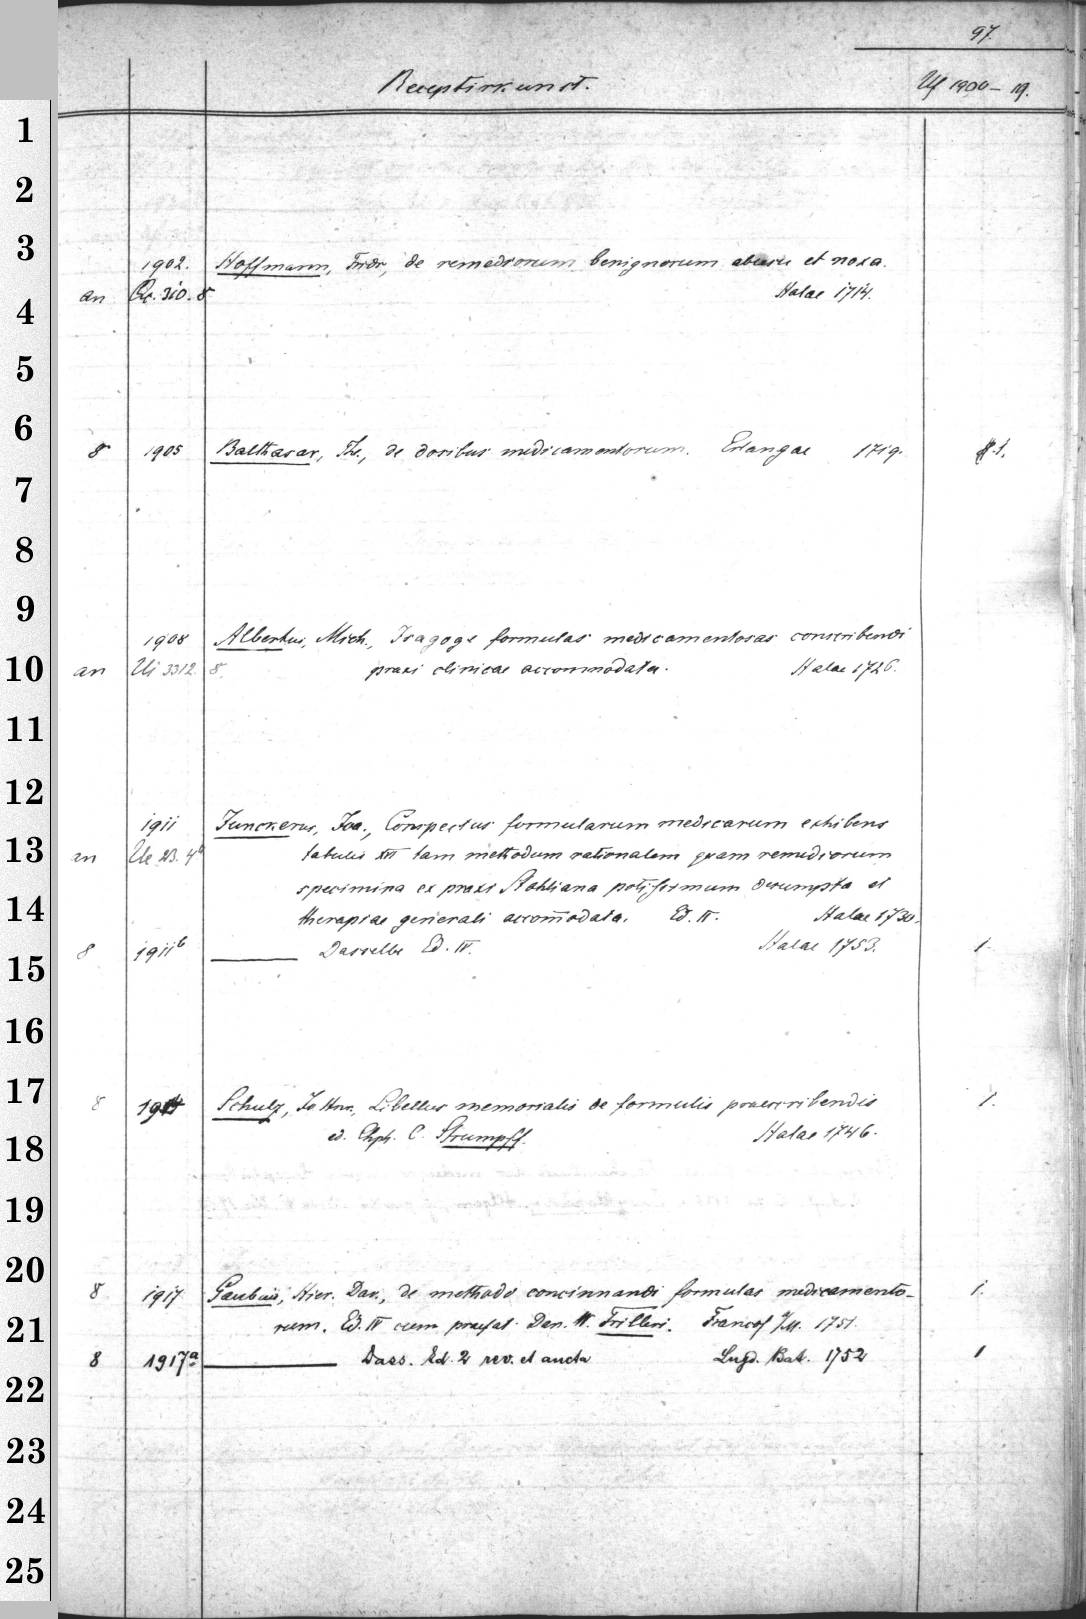 97.
Receptirkunst. Uf 1900 – 19.
1
2
3
1902. Hoffmann, Fridr., de remediorum benignorum abusu et noxa.
an 310. 8 Halae 1714.
4
5
6
8 1905 Balthasar, Th., de dosibus medicamentorum. Erlangae 1719. 1.
7
8
9
1908 Albertus, Mich., Isagoge formulas medicamentosas conscribendi
10 an Ui 3312. 8. praxi clinicae accommodata. Halae 1726.
11
12
1911 Junckerus, Joa., Conspectus formularum medicarum exhibens
13 an Ue 23. 4° tabulis XVI tam methodum rationalem quam remediorum
specimina ex praxi Stahliana potissimum desumpta et
14 therapiae generali accom̄odata. Ed. II. Halae 1730.
8 1911b ——— Dasselbe Ed. IV. Halae 1753. 1
15
16
17 8 1914 Schulz, Jo Hnr., Libellus memorialis de formulis praescribendis 1.
18 ed. Chph. C. Strumpff. Halae 1746.
19
20
8 1917 Gaubius, Hier. Dav., de methodo concinnandi formulas medicamento- 1.
21 rum. Ed. IV cum praefat. Dan. W. Trilleri. Francof 1751.
8 1917a ——— Dass. Ed. 2 rev. et aucta Lugd. Bat. 1752 1
22
23
24
25